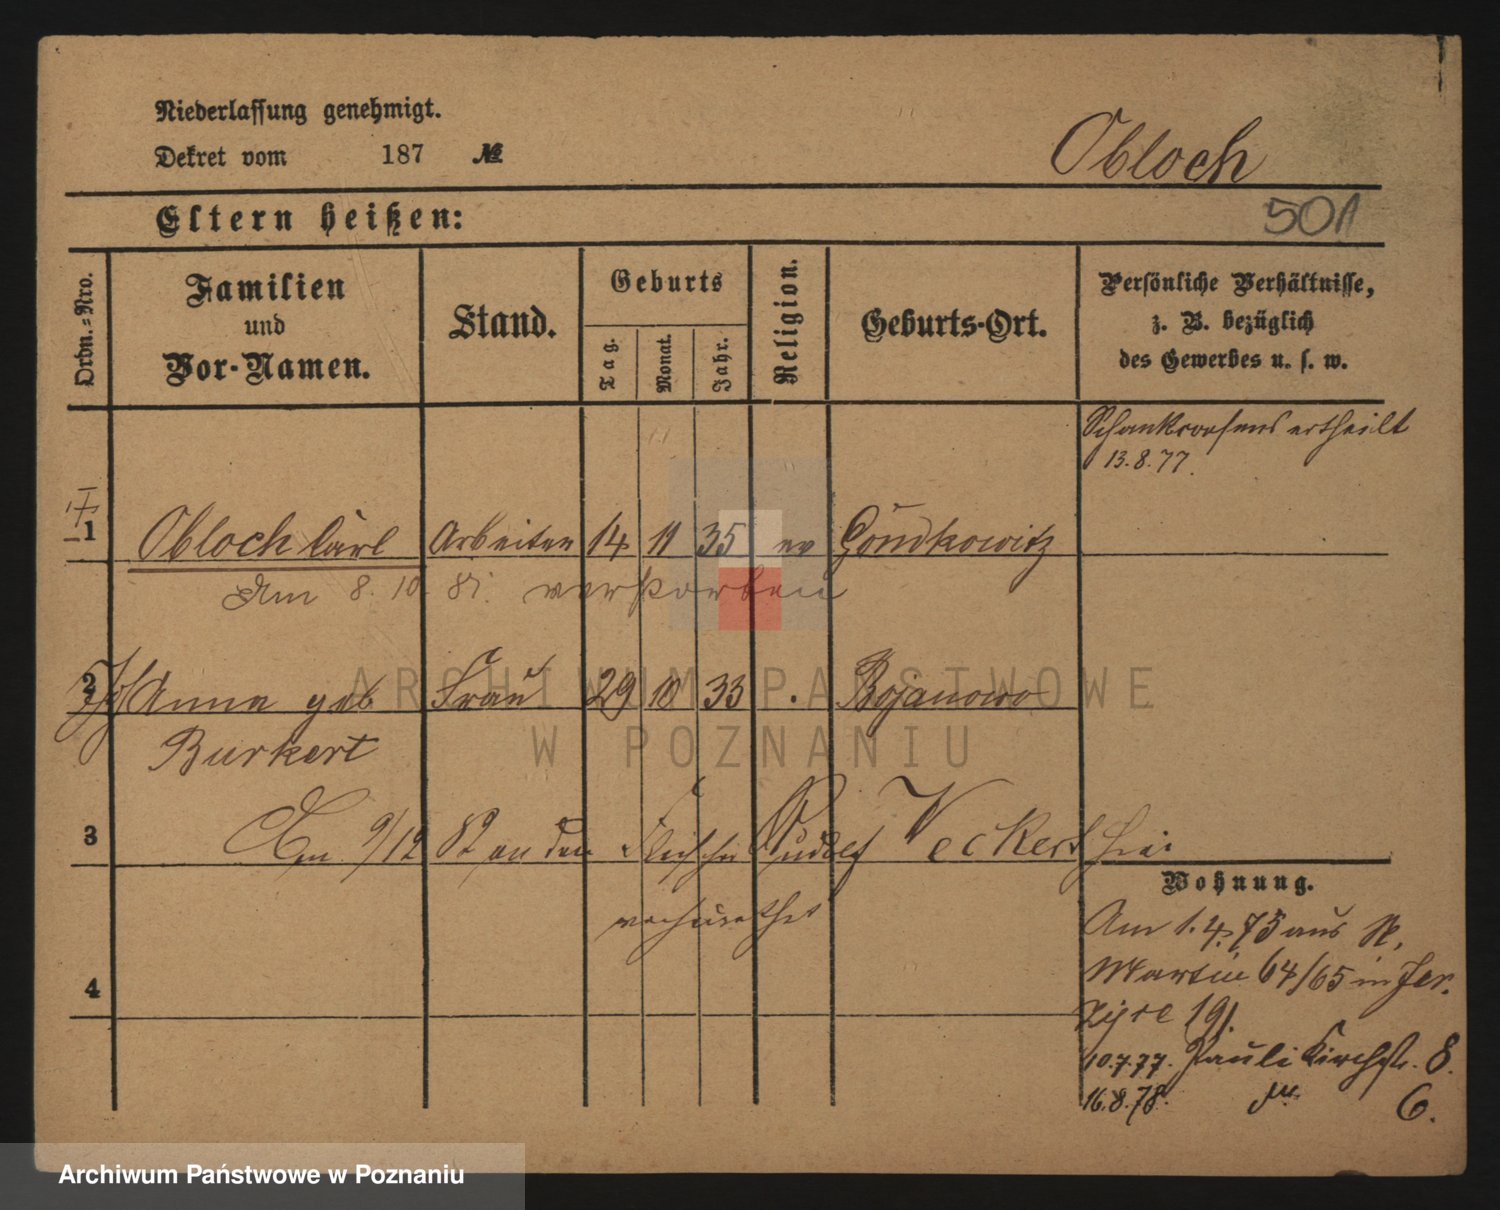 Niederlassung genehmigt.
Dekret vom 187 №
Obloch
Eltern heißen:
501
Ordn.=Nro.
Familien
und
Vor-Namen.
Stand.
Geburts
Tag.
Monat.
Jahr.
Religion.
Geburts-Ort.
Persönliche Verhältnisse,
z. B. bezüglich
des Gewerbes u. s. w.
ertheilt
13.8.77.
1 Obloch Carl Arbeiter 14 11 35 ev
Am 8. 10. 81. verstorben
2 Anna geb Frau 29 10 33 Bojanowo
Burkert
3 Am 9/12 82 an den Fleischer Rudolf Veckert hier
verheirathet
Wohnung.
Am 1.4.75 aus St.
Martin 64/65 in Jer.
zyce 19.
4
10.7.77. Pauli Kirchstr. 8.
16.8.78. 6.
ARCHIWUM PAŃSTWOWE
W POZNANIU
Archiwum Państwowe w Poznaniu